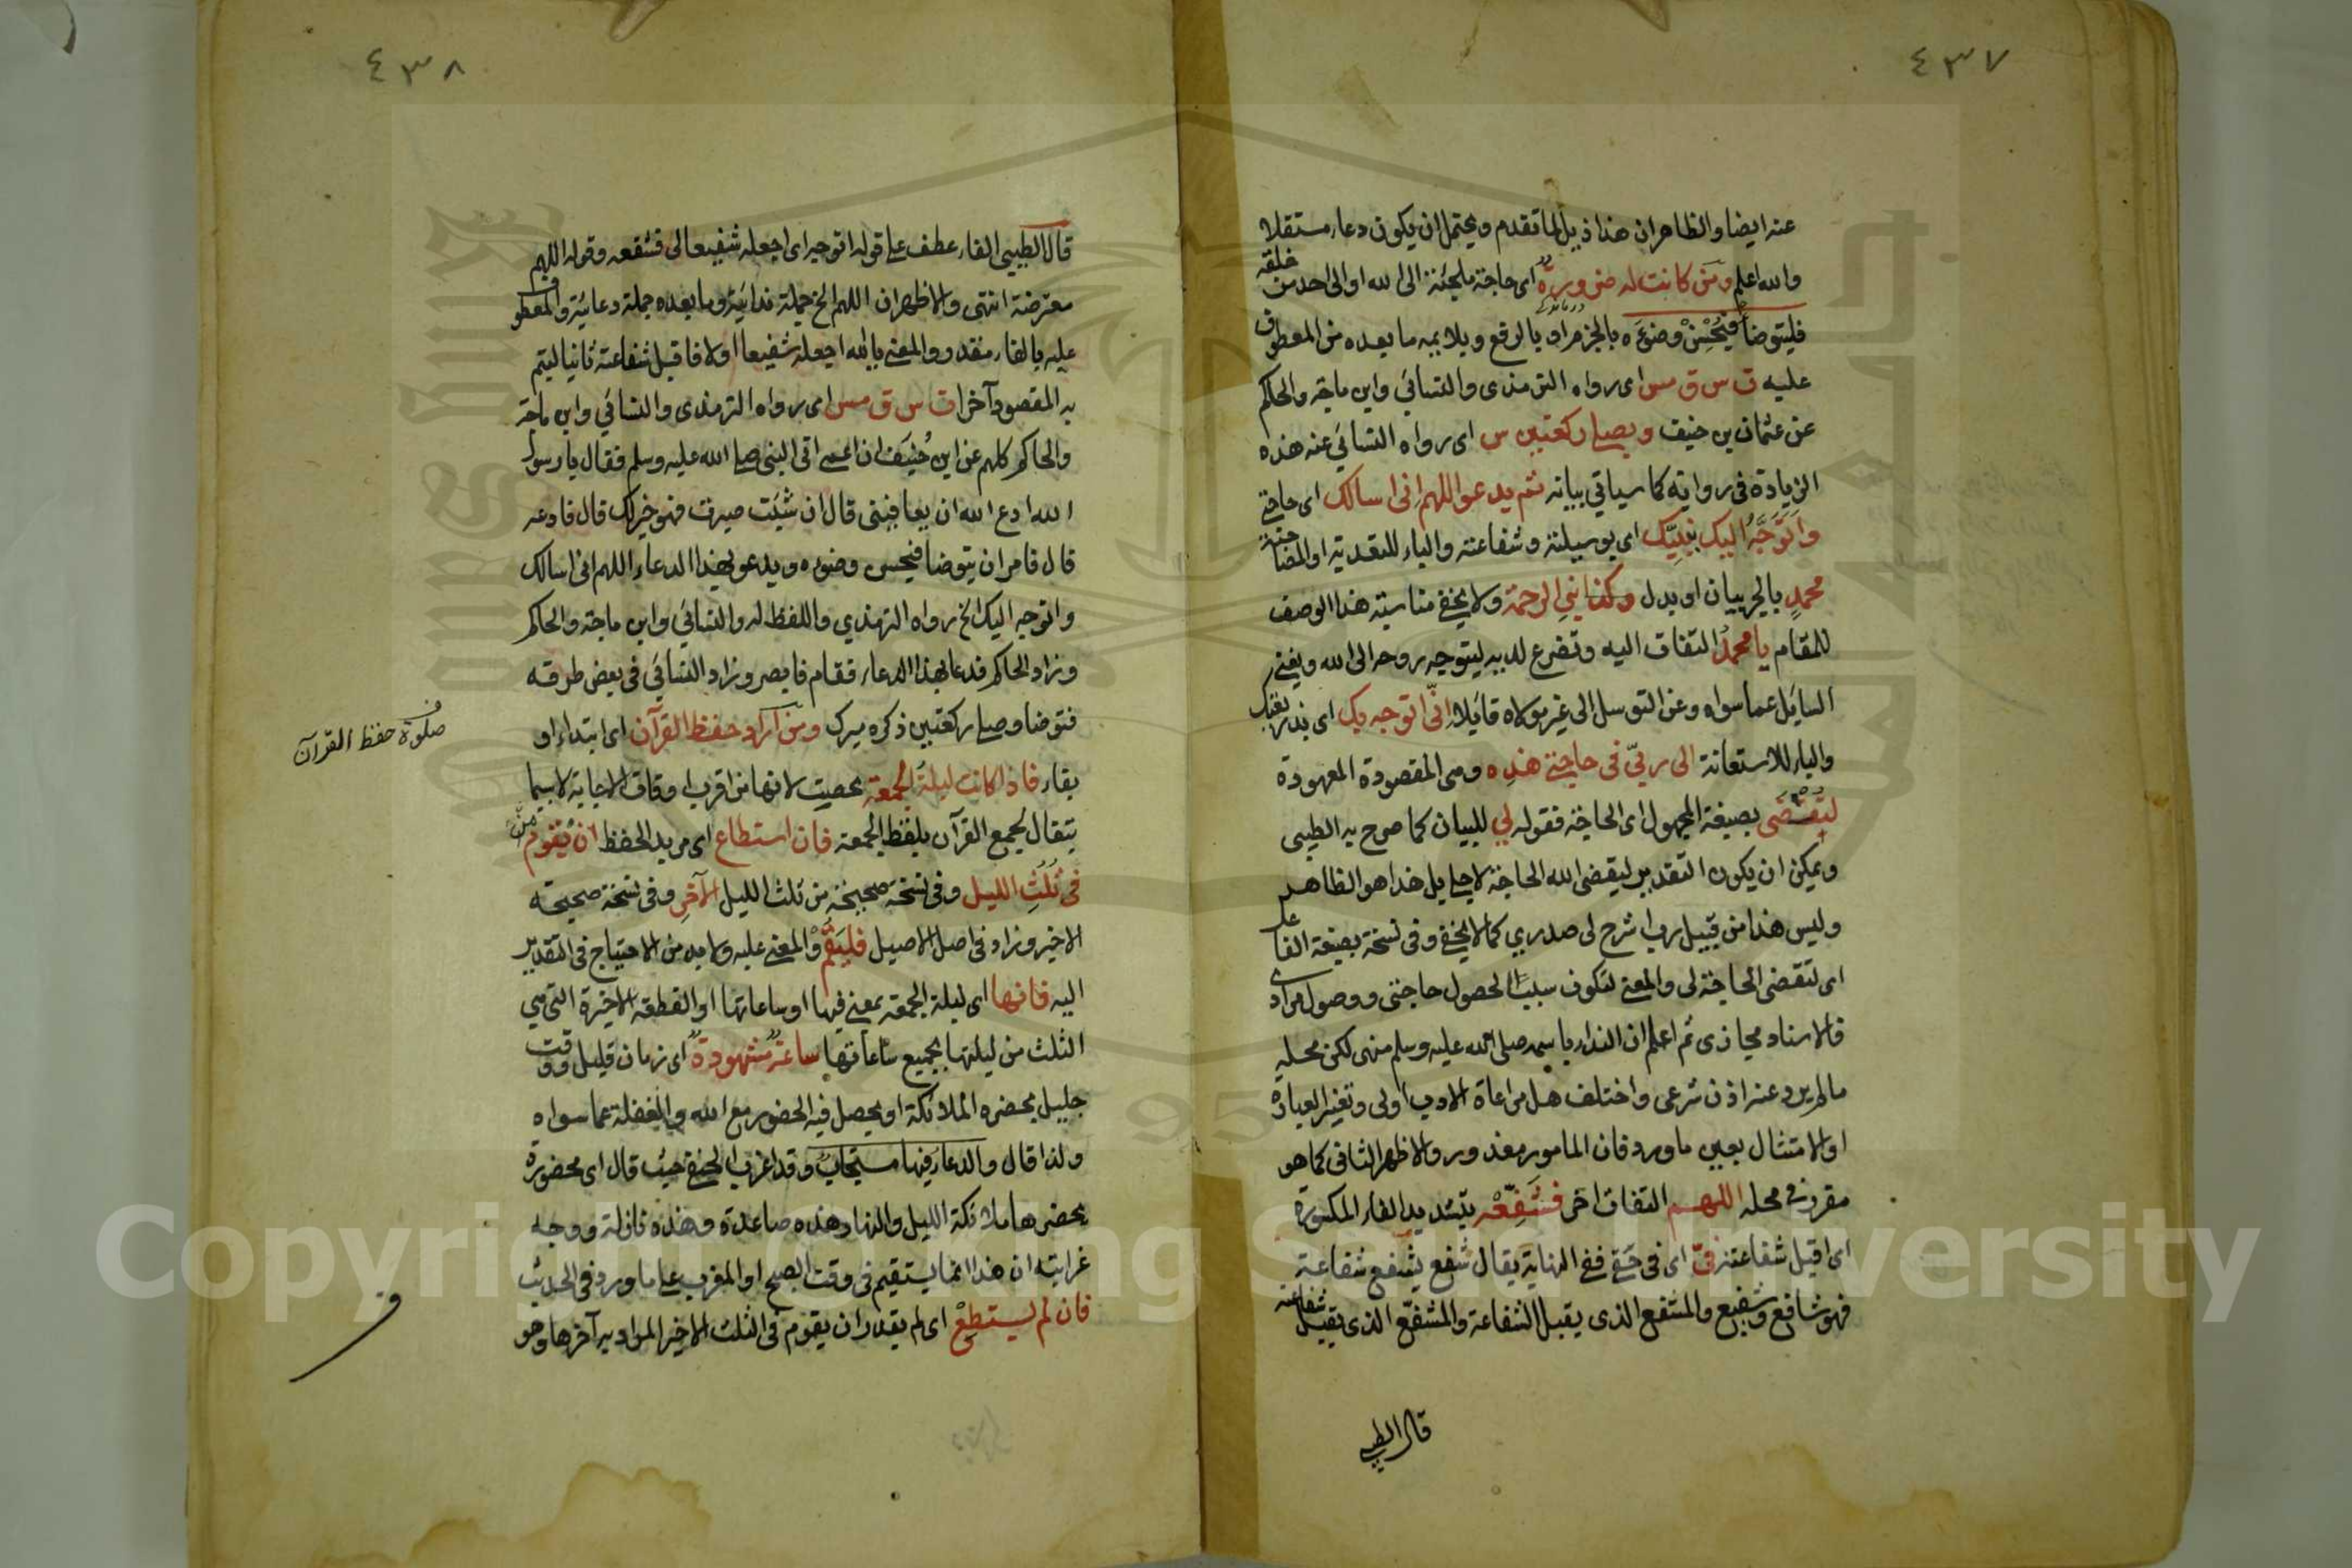 ٤٣٧
عنه ايضا والظاهر ان هذا ذيل لما تقدم ويحتمل ان يكون دعاء مستقلا
والله اعلم ومن كانت له ضرورة اى حاجة ملجئة الى الله او الى احد من خلقه
فليتوضأ فيحسن وضوءه بالجزم او بالرفع ويلايمه ما بعده من المعطوف
عليه ت س ق مس اى رواه الترمذى والنسائي وابن ماجة والحاكم
عن عثمان بن حنيف ويصلى ركعتين س اى رواه النسائي عنه هذه
الزيادة فى روايته كما سياتى بيانه ثم يدعو اللهم انى اسالك اى حاجتى
واتوجه اليك بنبيك اى بوسيلته وشفاعته والباء للتعدية او المصاحبة
محمد بالجر بيان او بدل وكذا نبي الرحمة ولا يخفى مناسبة هذا الوصف
للمقام يا محمد التفات اليه وتضرع لديه ليتوجه بروحه الى الله ويغنى
السايل عما سواه وعن التوسل الى غير مولاه قايلا انى اتوجه بك اى
والباء للاستعانة الى ربى فى حاجتى هذه وهى المقصودة المعهودة
لتقضى بصيغة المجهول اى الحاجة فقوله لي للبيان كما صرح به الطيبى
ويمكن ان يكون التقدير ليقضى الله الحاجة لاجلى بل هذا هو الظاهر
وليس هذا من قبيل رب اشرح لى صدرى كما لا يخفى وفى نسخة بصيغة الفاعل
اى لتقضى الحاجة لى والمعنى لتكون سببا لحصول حاجتى ووصول مرادى
فالاسناد مجازى ثم اعلم ان النداء باسمه صلى الله عليه وسلم منهى لكن محله
ما لم يرد عنه اذن شرعى واختلف هل مراعاة الادب اولى وتغيير العبارة
او الامتثال بعين ما ورد فان المامور معذور والاظهر الثانى كما هو
مقرر فى محله اللهم التفات اخر فشفعه بتشديد الفاء المكسورة
اى اقبل شفاعته فى اى فى حقى ففى النهاية يقال شفع يشفع شفاعة
فهو شافع وشفيع والمشفع الذى يقبل الشفاعة والمشفع الذى يقبل شفاعته
قال الطيبى
٤٣٨
قال الطيبى الفاء عطف على قوله اتوجه اى اجعله شفيعا لى فشفعه وقوله اللهم
معترضة انتهى والاظهر ان اللهم الخ جملة ندائية وما بعده جملة دعائية والمعطوف
عليه بالفاء مقدر والمعنى يا الله اجعله شفيعا اولا فاقبل شفاعته ثانيا ليتم
به المقصود آخرا ت س ق مس اى رواه الترمذى والنسائي وابن ماجة
والحاكم كلهم عن ابن حنيف ان اعمى اتى النبى صلى الله عليه وسلم فقال يا رسول
الله ادع الله ان يعافينى قال ان شئت صبرت فهو خير لك قال فادعه
قال فامر ان يتوضا فيحسن وضوءه ويدعو بهذا الدعاء اللهم انى اسالك
واتوجه اليك الخ رواه الترمذي واللفظ له والنسائي وابن ماجة والحاكم
وزاد الحاكم فدعا بهذا الدعاء فقام فابصر وزاد النسائي فى بعض طرقه
فتوضا وصلى ركعتين ذكره ميرك ومن اراد حفظ القرآن اى ابتداء او
صلوة حفظ القرآن
بقاء فاذا كانت ليلة الجمعة خصت لانها من اقرب اوقات الاجابة لا سيما
يتفال لجمع القرآن بلفظ الجمعة فان استطاع اى مريد الحفظ ان يقوم
فى ثلث الليل وفى نسخة صحيحة من ثلث الليل الآخر وفى نسخة صحيحة
الاخير وزاد فى اصل الاصيل فليقم والمعنى عليه ولا بد من الاحتياج فى التقدير
اليه فانها اى ليلة الجمعة بمعنى فيها او ساعاتها او القطعة الاخيرة التى هى
الثلث من ليلتها بجميع ساعاتها ساعة مشهودة اى زمان قليل ووقت
جليل يحضره الملائكة او يحصل فيه الحضور مع الله والغفلة عما سواه
ولذا قال والدعاء فيها مستجاب وقد اغرب الحنفى حيث قال اى محضورة
يحضرها ملائكة الليل والنهار هذه صاعدة وهذه نازلة ووجه
غرابته ان هذا انما يستقيم فى وقت الصبح او المغرب على ما ورد فى الحديث
فان لم يستطع اى لم يقدر ان يقوم فى الثلث الاخير المراد به آخرها وهو
Copyright © King Saud University